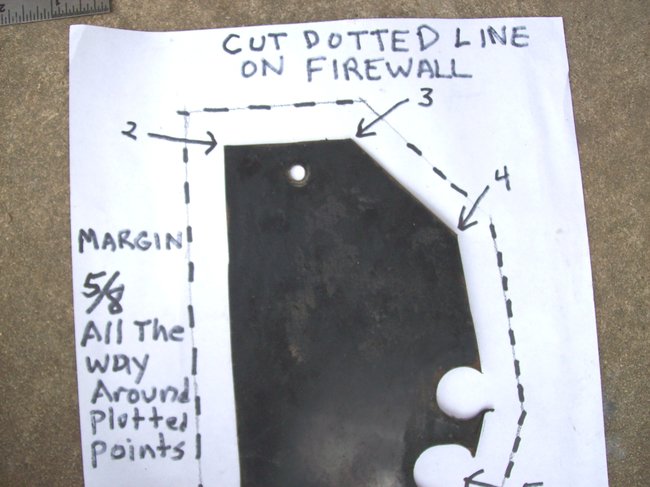 CUT DOTTED LINE
ON FIREWALL
2
3
4
MARGIN
5/8
All The
WAY
Around
Plotted
Points